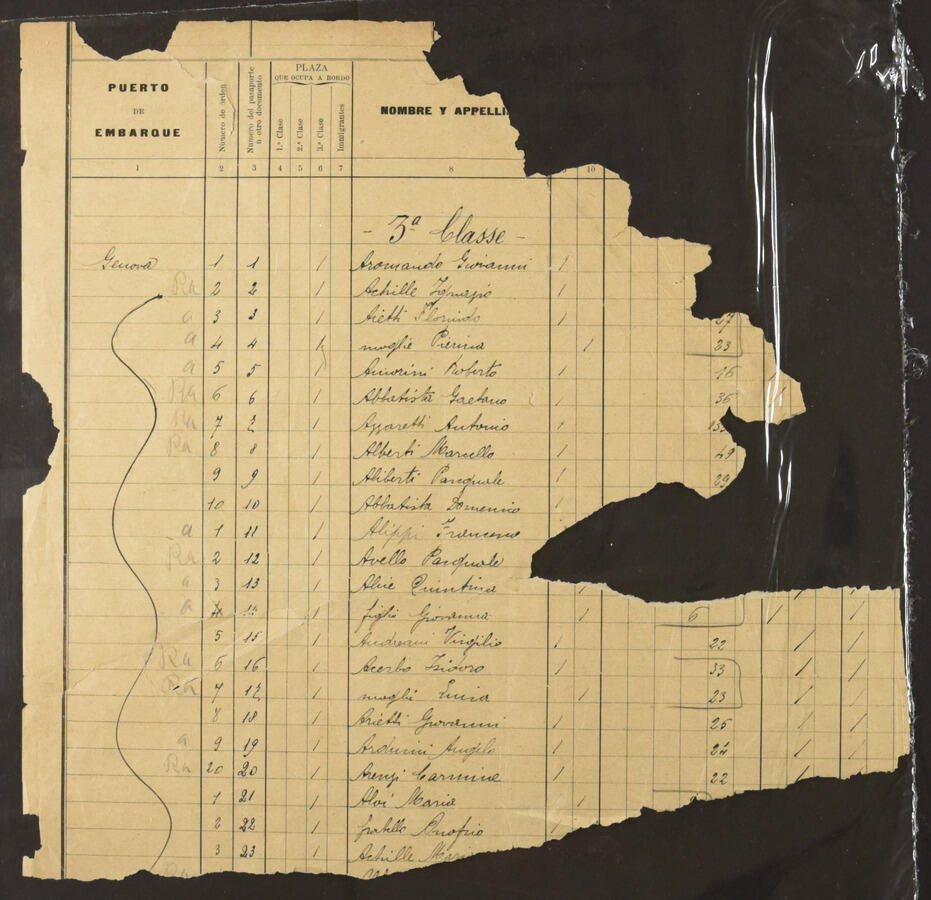 PUERTO
DE
EMBARQUE
Número de orden
Número del pasaporte
u otro documento
PLAZA
QUE OCUPA A BORDO
1.ª Clase
2.ª Clase
3.ª Clase
Inmigrantes
NOMBRE Y APPELLI
1 2 3 4 5 6 7 8 10
- 3ª Classe -
Genova 1 1 / Aromando Giovanni /
Ra 2 2 / Achille Ignazio /
a 3 3 / Aietti Florindo / 37
a 4 4 / moglie Pierina / 23
a 5 5 / Amorini Roberto / 16
Ra 6 6 / Abbatista Gaetano / 36
Ra 7 7 / Azzaretti Antonio /
Ra 8 8 / Alberti Marcello / 49
9 9 / Aliberti Pasquale / 29
10 10 / Abbatista Domenico /
a 1 11 / Alippi Francesco /
Ra 2 12 / Avello Pasquale
a 3 13 / Quintina / / /
a 4 14 / figlia Giovanna / 6 / /
5 15 / Andreani Virgilio / 22 / /
Ra 6 16 / Acerbo Isidoro / 33 / /
Ra 7 17 / moglie Luisa / 23 / /
8 18 / Arietti Giovanni / 25 / /
a 9 19 / Arduini Angelo / 24 / /
Ra 20 20 / Arenzi Carmine / 22 / /
1 21 / Aloi Maria /
2 22 / fratello Onofrio /
3 23 / Achille Mari